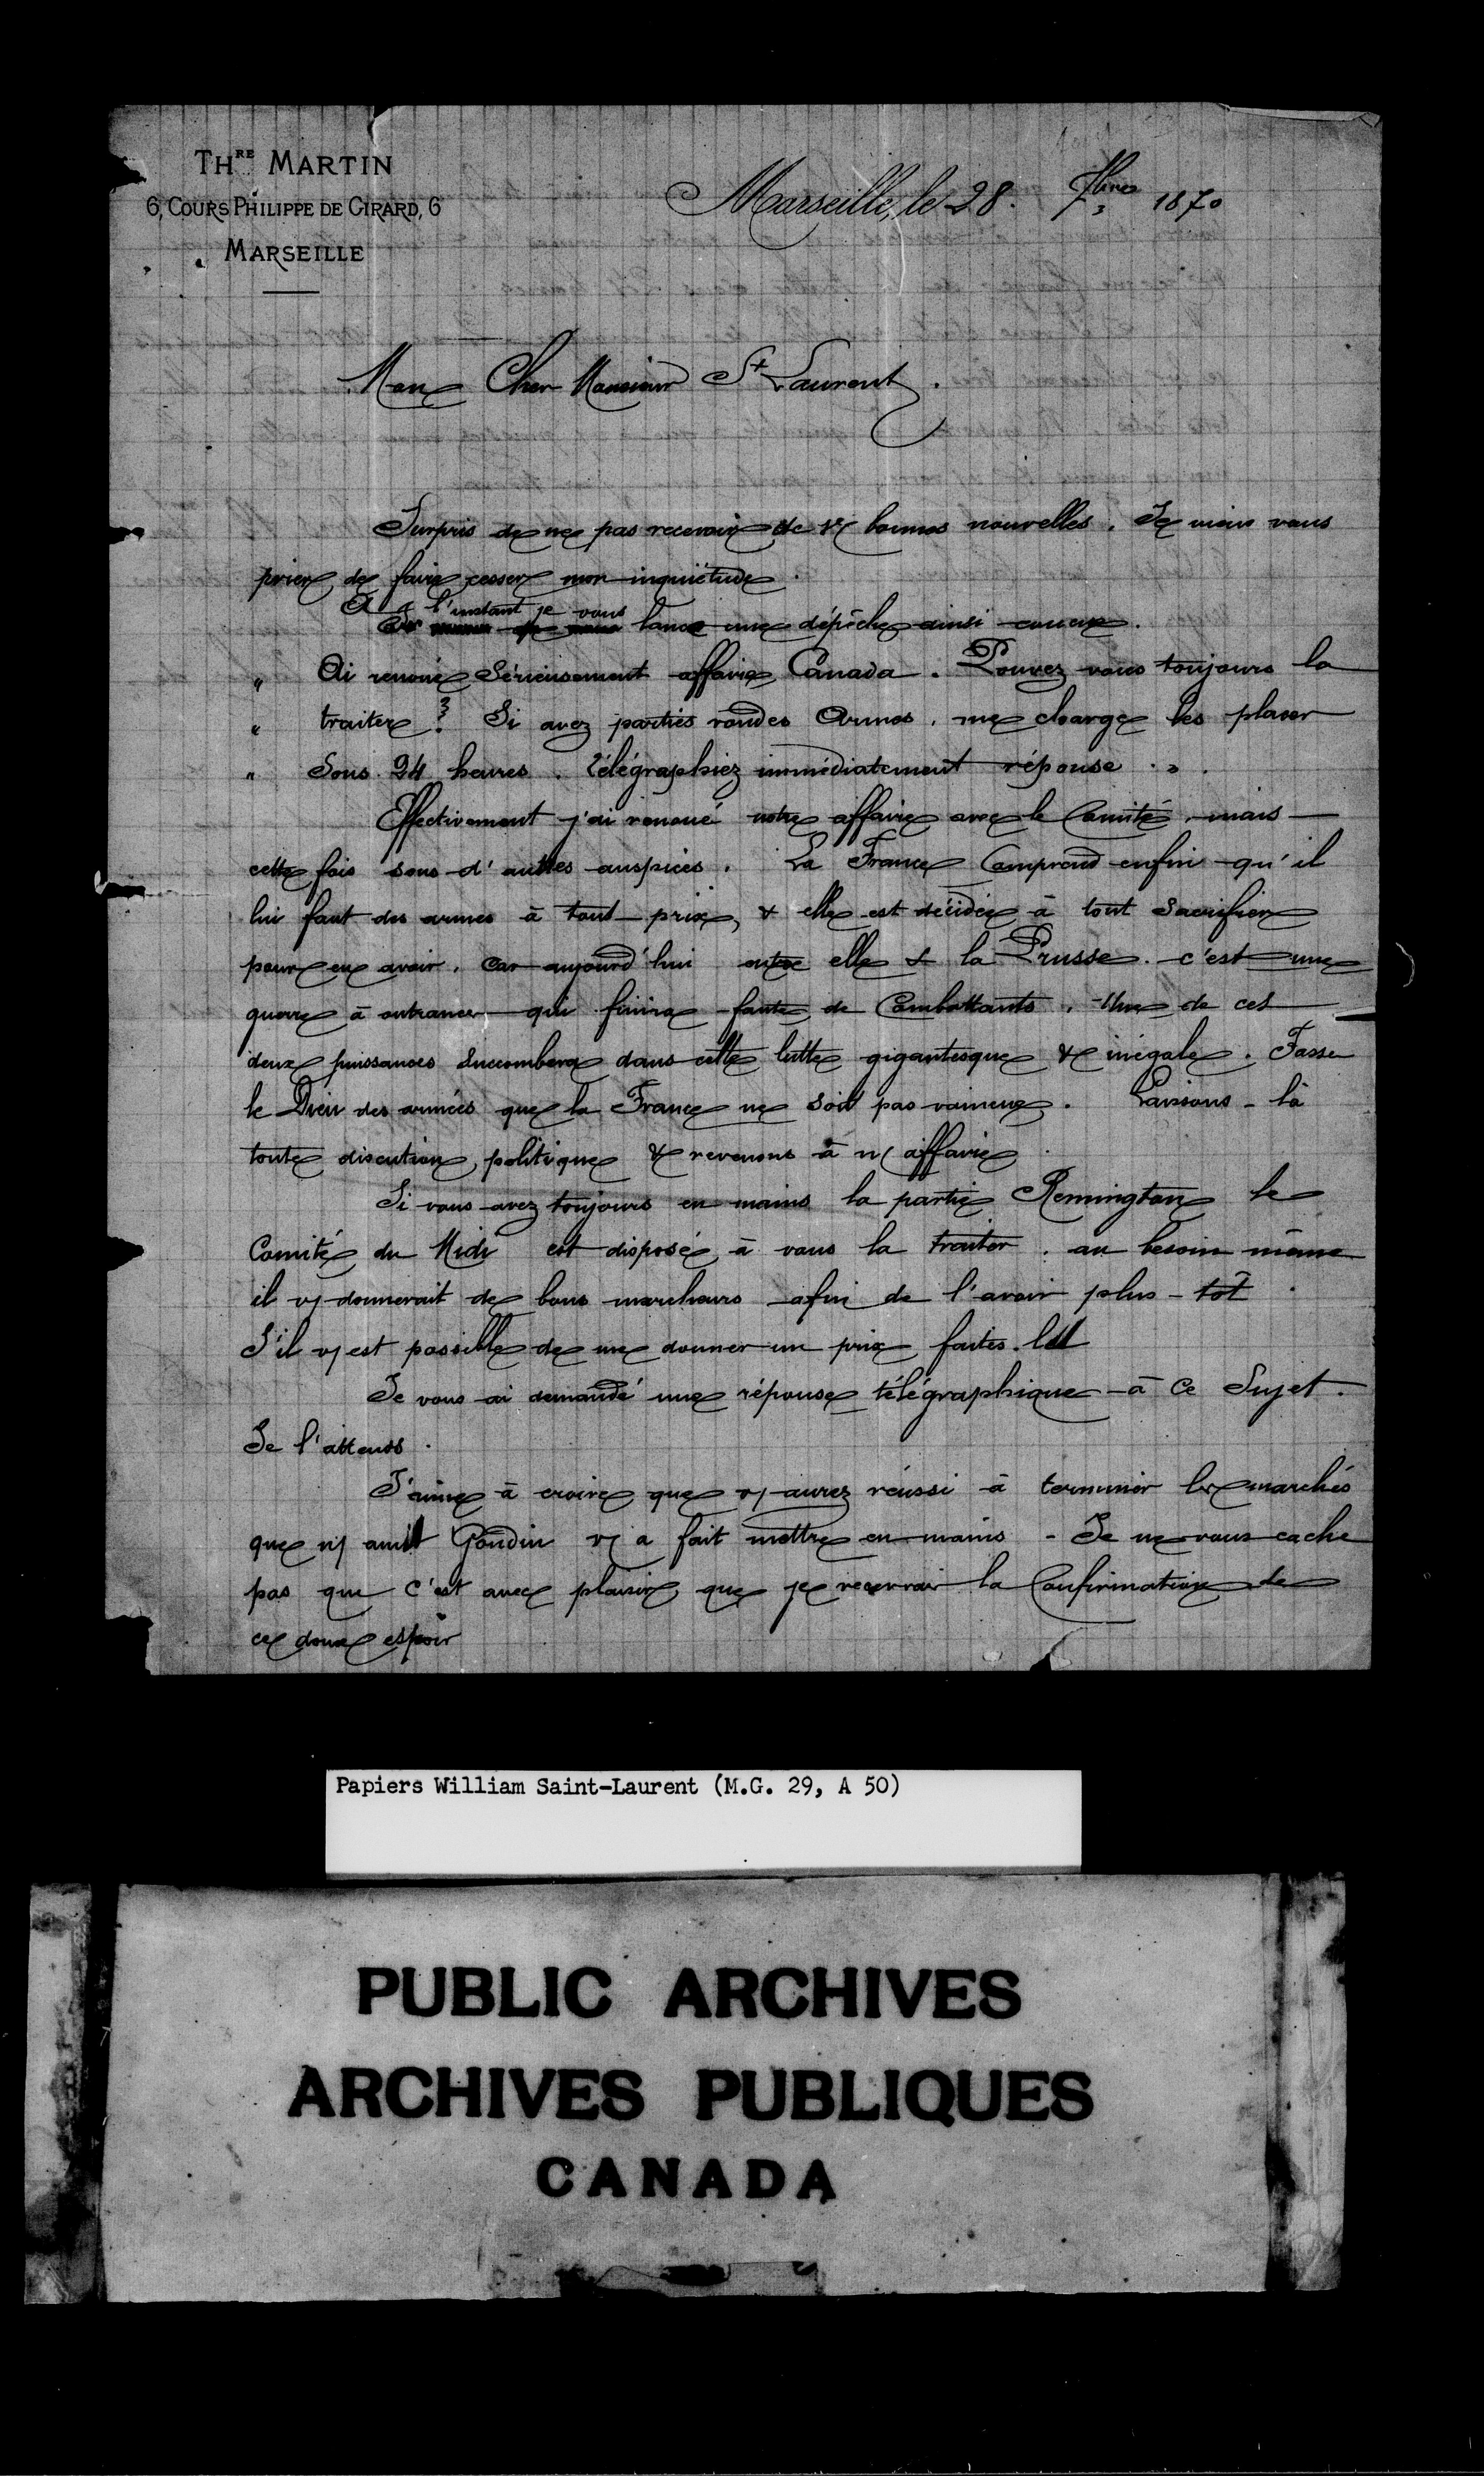 THRE MARTIN
6, COURS PHILIPPE DE GIRARD, 6
MARSEILLE
Marseille, le 28. 7bre 1870
Mon Cher Monsieur St Laurent.
Surpris de ne pas recevoir de v/ bonnes nouvelles. Je viens vous
prier de faire cesser mon inquiétude.
A l'instant je vous
lance une dépêche ainsi conçue.
" Ai renoué Sérieusement affaire Canada. Pouvez vous toujours la
" traiter? Si avez parties rondes Armes. me charge les placer
" Sous 24 heures. Télégraphiez immédiatement réponse ".
Effectivement j'ai renoué notre affaire avec le Comité, mais
cette fois sous d'autres auspices. La France Comprend enfin qu'il
lui faut des armes à tout prix, & elle est décidée à tout Sacrifier
pour en avoir. Car aujourd'hui entre elle & la Prusse. c'est une
guerre à outrance qui finira faute de Combattants. Une de ces
deux puissances Succombera dans cette lutte gigantesque & inégale. Fasse
le Dieu des armées que la France ne soit pas vaincue. Laissons-là
toute discution politique & revenons à n/ affaire
Si vous avez toujours en mains la partie Remington le
Comité du Midi est disposé à vous la traiter. au besoin même
il v/ donnerait de bons marcheurs afin de l'avoir plus-tôt.
S'il v/ est possible de me donner un prix faites-le
Je vous ai demandé une réponse télégraphique à Ce Sujet.
Je l'attends.
J'aime à croire que v/ aurez réussi à terminer les marchés
que n/ ami Gondin v/ a fait mettre en mains - Je ne vous cache
pas que c'est avec plaisir que je recevrai la Confirmation de
ce doux espoir
Papiers William Saint-Laurent (M.G. 29, A 50)
PUBLIC ARCHIVES
ARCHIVES PUBLIQUES
CANADA